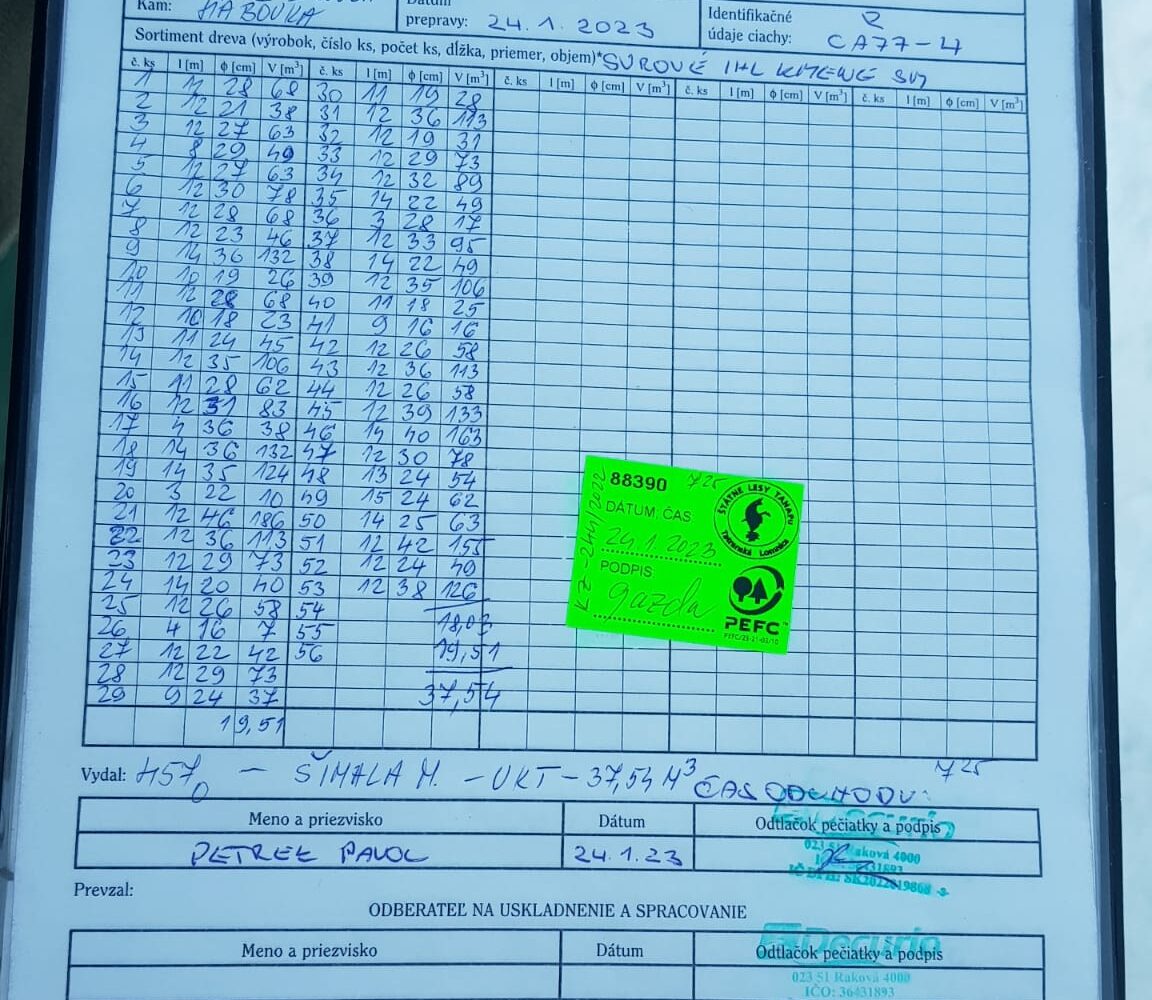 Kam: HABOVKA
prepravy: 24.1.2023
Identifikačné
údaje ciachy: CA77-4
Sortiment dreva (výrobok, číslo ks, počet ks, dĺžka, priemer, objem)* SUROVÉ IHL KMENE SM
č. ks l [m] ϕ [cm] V [m³] č. ks l [m] ϕ [cm] V [m³] č. ks l [m] ϕ [cm] V [m³] č. ks l [m] ϕ [cm] V [m³] č. ks l [m] ϕ [cm] V [m³]
1 12 28 68 30 11 19 28
2 12 21 38 31 12 36 113
3 12 27 63 32 12 19 31
4 8 29 49 33 12 29 73
5 12 27 63 34 12 32 89
6 12 30 78 35 14 22 49
7 12 28 68 36 3 28 17
8 12 23 46 37 12 33 95
9 14 36 132 38 14 22 49
10 10 19 26 39 12 35 106
11 12 28 68 40 11 18 25
12 10 18 23 41 9 16 16
13 11 24 45 42 12 26 58
14 12 35 106 43 12 36 113
15 11 28 62 44 12 26 58
16 12 31 83 45 12 39 133
17 4 36 38 46 14 40 163
18 14 36 132 47 12 30 78
19 14 35 124 48 13 24 54
20 3 22 10 49 15 24 62
21 12 46 186 50 14 25 63
22 12 36 113 51 12 42 155
23 12 29 73 52 12 24 49
24 14 20 40 53 12 38 126
25 12 26 58 54
26 4 16 7 55 18,03
27 12 22 42 56 19,51
28 12 29 73
29 9 24 37 37,54
19,51
88390 725
DÁTUM, ČAS
24.1.2023
PODPIS
gazda
ŠTÁTNE LESY TANAPU
Tatranská Lomnica
PEFC
Vydal: 457 - ŠIMALA M. - UKT - 37,54 M³ ČAS ODCHODU: 725
Meno a priezvisko Dátum Odtlačok pečiatky a podpis
PETREK PAVOL 24.1.23
023 51 Raková 4000
Prevzal:
ODBERATEĽ NA USKLADNENIE A SPRACOVANIE
Meno a priezvisko Dátum Odtlačok pečiatky a podpis
Decurio
023 51 Raková 4000
IČO: 36431893